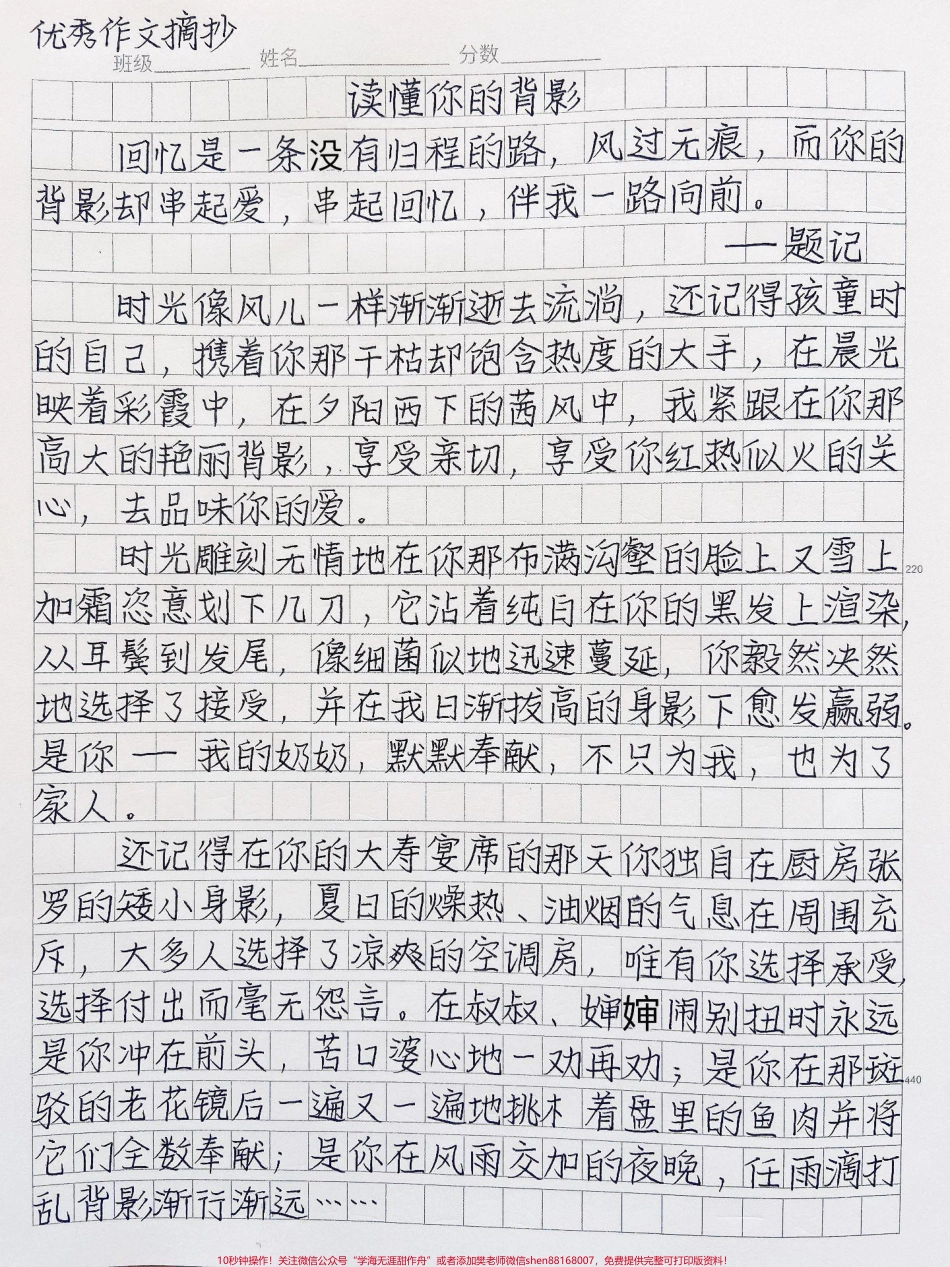 优秀作文摘抄
班级 姓名 分数
读懂你的背影
回忆是一条没有归程的路，风过无痕，而你的
背影却串起爱，串起回忆，伴我一路向前。
——题记
时光像风儿一样渐渐逝去流淌，还记得孩童时
的自己，携着你那干枯却饱含热度的大手，在晨光
映着彩霞中，在夕阳西下的茜风中，我紧跟在你那
高大的艳丽背影，享受亲切，享受你红热似火的关
心，去品味你的爱。
时光雕刻无情地在你那布满沟壑的脸上又雪上
220
加霜恣意划下几刀，它沾着纯白在你的黑发上渲染，
从耳鬓到发尾，像细菌似地迅速蔓延，你毅然决然
地选择了接受，并在我日渐拔高的身影下愈发羸弱。
是你——我的奶奶，默默奉献，不只为我，也为了
家人。
还记得在你的大寿宴席的那天你独自在厨房张
罗的矮小身影，夏日的燥热、油烟的气息在周围充
斥，大多人选择了凉爽的空调房，唯有你选择承受，
选择付出而毫无怨言。在叔叔、婶婶闹别扭时永远
是你冲在前头，苦口婆心地一劝再劝；是你在那斑
440
驳的老花镜后一遍又一遍地挑着盘里的鱼肉并将
它们全数奉献；是你在风雨交加的夜晚，任雨滴打
乱背影渐行渐远……
10秒钟操作！关注微信公众号“学海无涯甜作舟”或者添加樊老师微信shen88168007，免费提供完整可打印版资料！